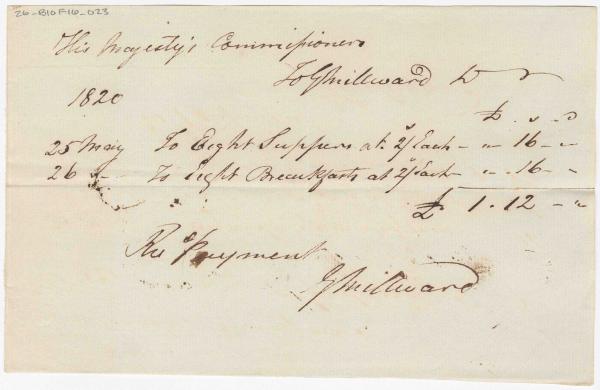 26-B10F16-023
His Majesty's Commissioners
To G Millward Dr
1820
£ . s . d
25 May To Eight Suppers at 2/ Each - " 16 - "
26 " - To Eight Breakfasts at 2/ Each - " - 16 - "
£ 1 . 12 - "
Recd Payment
G Millward